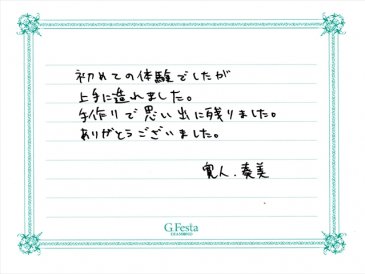 初めての体験でしたが
上手に造れました。
手作りで思い出に残りました。
ありがとうございました。
寛人.奏美
G.Festa
DIAMOND